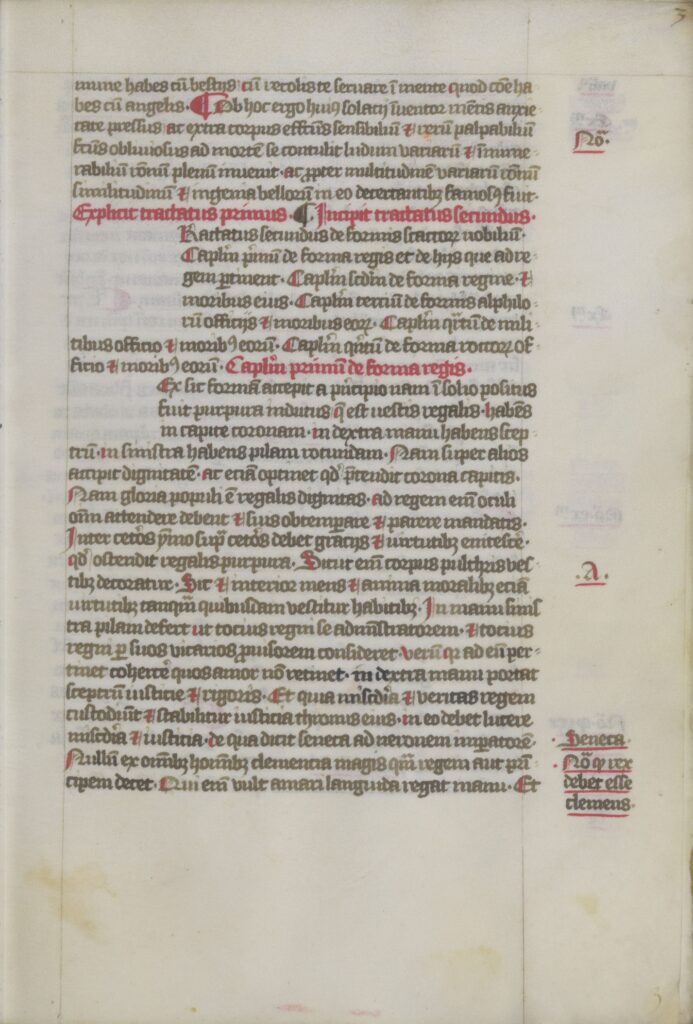 3
mune habes cū bestijs cū recolis te seruare ī mente quod cōe ha
bes cū angelis · Ob hoc ergo huiꝰ solacij īuentor mētis anxie
tate pressus ac extra corpus effcūs sensibiliū ⁊ rerū palpabiliū
fcūs obliuiosus ad mortē se contulit ludum variarū ⁊ īnume
rabiliū rōnū plenū inuenit · ac ꝓpter multitudinē variarū rōnū
similitudinū ⁊ ingenia bellorū in eo decertantibꝫ famosꝰ fuit ·
Explicit tractatus primus · ¶ Incipit tractatus secundus ·
Ractatus secundus de formis scaccoꝝ nobiliū ·
Caplm̄ pͥmū de forma regis et de hijs que ad re
gem ꝑtinent · Caplm̄ scdm̄ de forma regine · ⁊
moribus eius · Caplm̄ terciū de formis alphilo
rū officijs ⁊ moribus eoꝝ · Caplm̄ qͣrtū de mili
tibus officio ⁊ moribꝰ eorū · Caplm̄ qͥntū de forma roccoꝝ of
ficio ⁊ moribꝰ eorū · Caplm̄ primū de forma regis ·
Ex sic formā accepit a pͥncipio nam ī solio positus
fuit purpura indutus q̄ est uestis regalis · habēs
in capite coronam · in dextra manu habens scep
trū · in sinistra habens pilam rotundam · Nam super alios
accipit dignitatē · ac eciā optinet qd̕ p̄tendit corona capitis ·
Nam gloria populi ē regalis dignitas · ad regem eīm oculi
oīm attendere debent ⁊ sius obtemꝑare ⁊ parere mandatis ·
Inter cetōs ymo supͣ cetōs debet gracijs ⁊ uirtutibꝫ enitesc̄e ·
qd̕ ostendit regalis purpura · Sicut eīm corpus pulchris ves
tibꝫ decoratur · Sic ⁊ interior mens ⁊ anima moralibꝫ eciā
virtutibꝫ tanqͣm quibusdam vestitur habitibꝫ · In manu sinis
tra pilam defert ut tocius regni se admīstratorem · ⁊ tocius
regni ꝑ suos vicarios ꝓuisorem consideret · verū qꝛ ad eū ꝑ
tinet cohercē quos amor nō retinet · in dextra manu portat
sceptrū iusticie ⁊ rigoris · Et quia miscdīa ⁊ veritas regem
custodiūt ⁊ stabilitur iusticia thronus eius · in eo debet lucere
miscdīa ⁊ iusticia · de qua dicit seneca ad neronem imꝑatorē ·
Nullū ex omībꝫ homībꝫ clementia magis qͣm regem aut prī
cipem decet · Qui eīm vult amari languida regat manu · Et
Nō ·
· A ·
· Seneca ·
· Nō qꝫ rex
debet esse
clemens ·